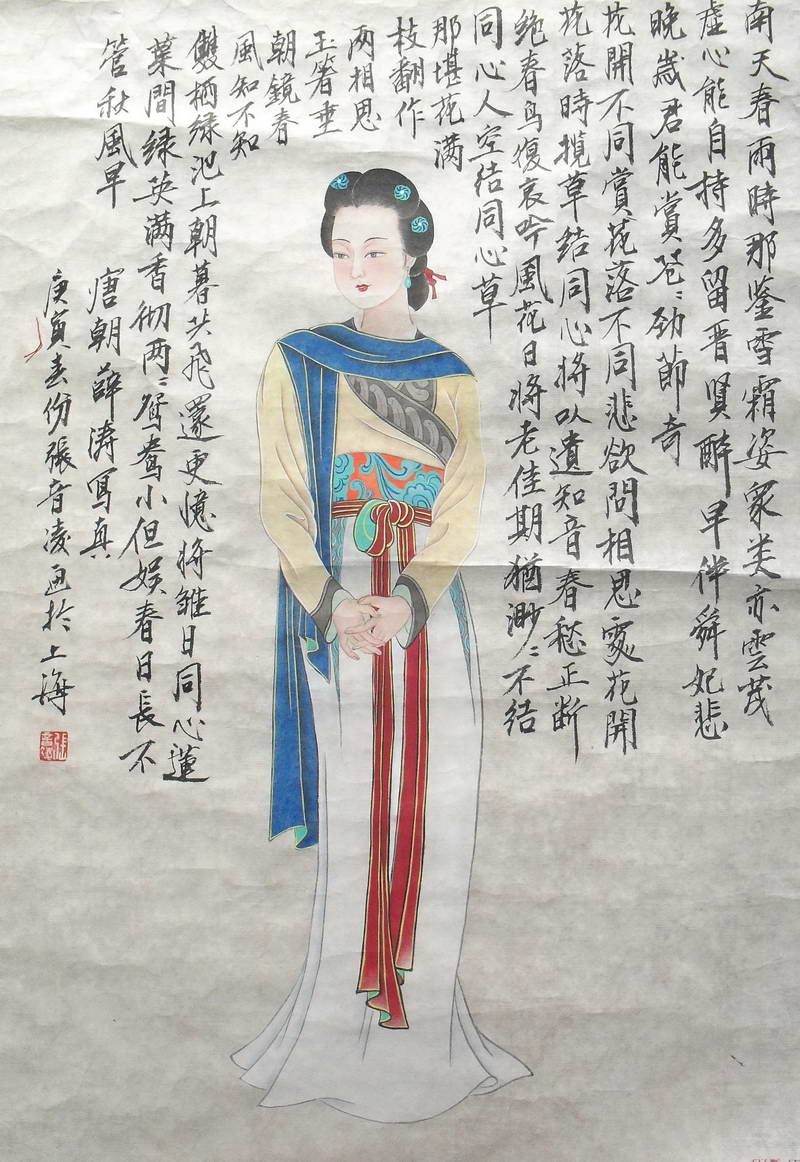 南天春雨時那鉴雪霜姿眾类亦雲茂
虚心能自持多留晋賢醉早伴舜妃悲
晚歲君能賞苍〻劲節奇
花開不同賞花落不同悲欲問相思處花開
花落時揽草结同心将以遺知音春愁正断
绝春鸟復哀吟風花日将老佳期猶渺〻不结
同心人空结同心草
那堪花满
枝翻作
两相思
玉箸垂
朝鏡春
風知不知
雙栖绿池上朝暮共飛還更憶将雏日同心蓮
葉間绿英满香彻两〻鸳鸯小但娱春日長不
管秋風早
唐朝薛涛寫真
庚寅春份張音凌画於上海